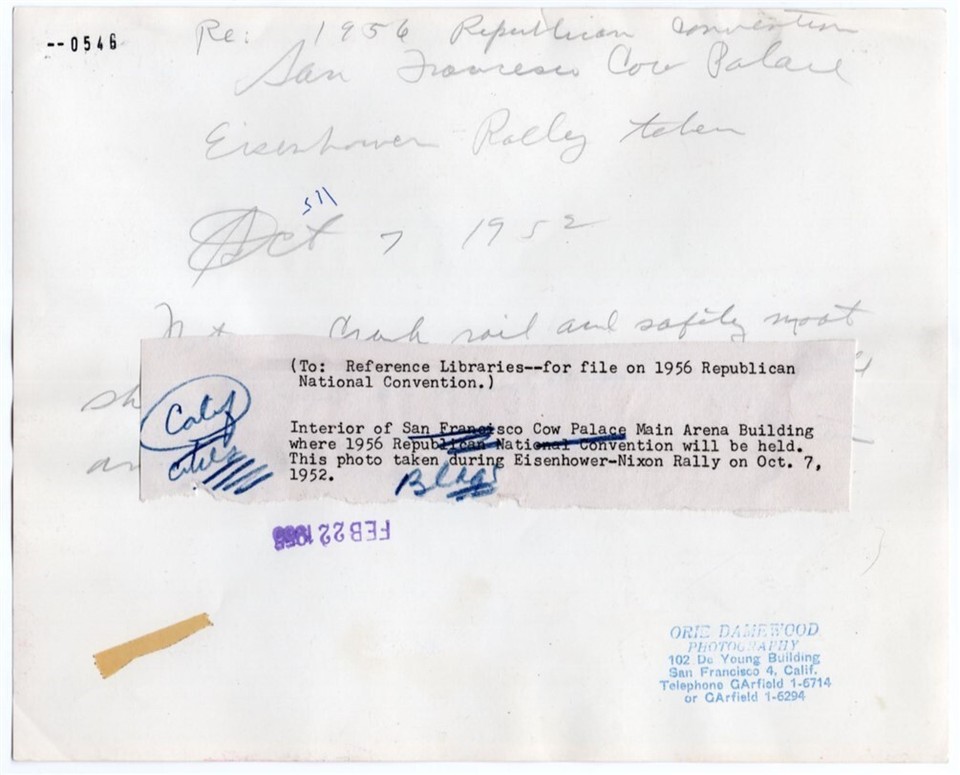 --0546
Re: 1956 Republican convention
San Francisco Cow Palace
Eisenhower Rally taken
Oct 7 1952
rail and safety moat
sh
an
(To: Reference Libraries--for file on 1956 Republican
National Convention.)
Calif
cities
Interior of San Francisco Cow Palace Main Arena Building
where 1956 Republican National Convention will be held.
This photo taken during Eisenhower-Nixon Rally on Oct. 7,
1952.
Bldgs
FEB 22 1956
ORIE DAMEWOOD
PHOTOGRAPHY
102 De Young Building
San Francisco 4, Calif.
Telephone GArfield 1-6714
or GArfield 1-6294